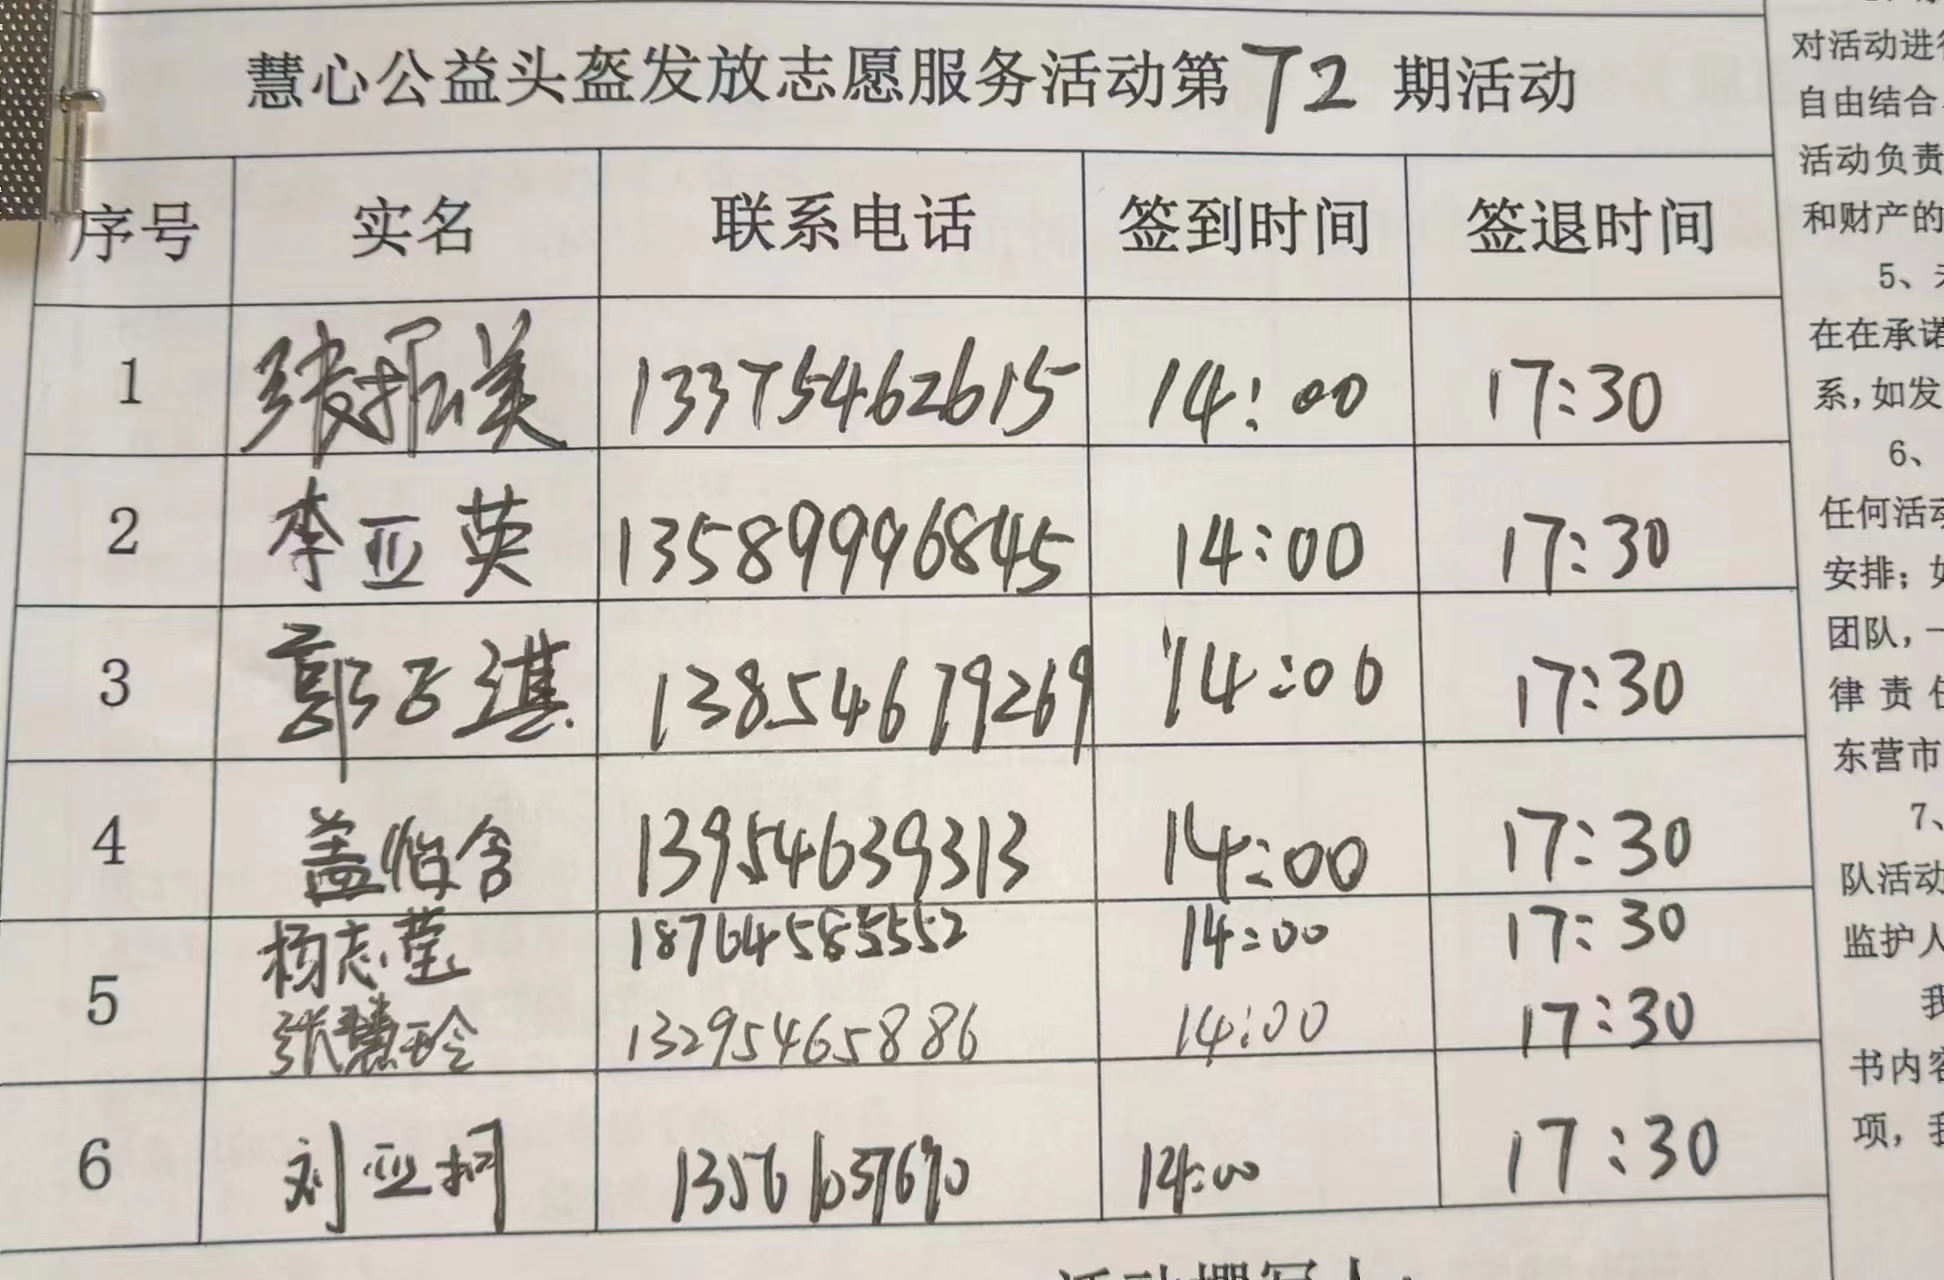 慧心公益头盔发放志愿服务活动第72期活动
序号 实名 联系电话 签到时间 签退时间
1 张振美 13375462615 14:00 17:30
2 李亚英 13589996845 14:00 17:30
3 郭子淇 13854679269 14:00 17:30
4 盖怡含 13954639313 14:00 17:30
5 杨志莹 18764585552 14:00 17:30
张慧玲 13295465886 14:00 17:30
6 刘亚珂 13561037670 14:00 17:30
对活动进行
自由结合
活动负责
和财产的
5、
在在承诺
系,如发
6、
任何活动
安排;如
团队,一
律责任
东营市
7、
队活动
监护人
我
书内容
项,我